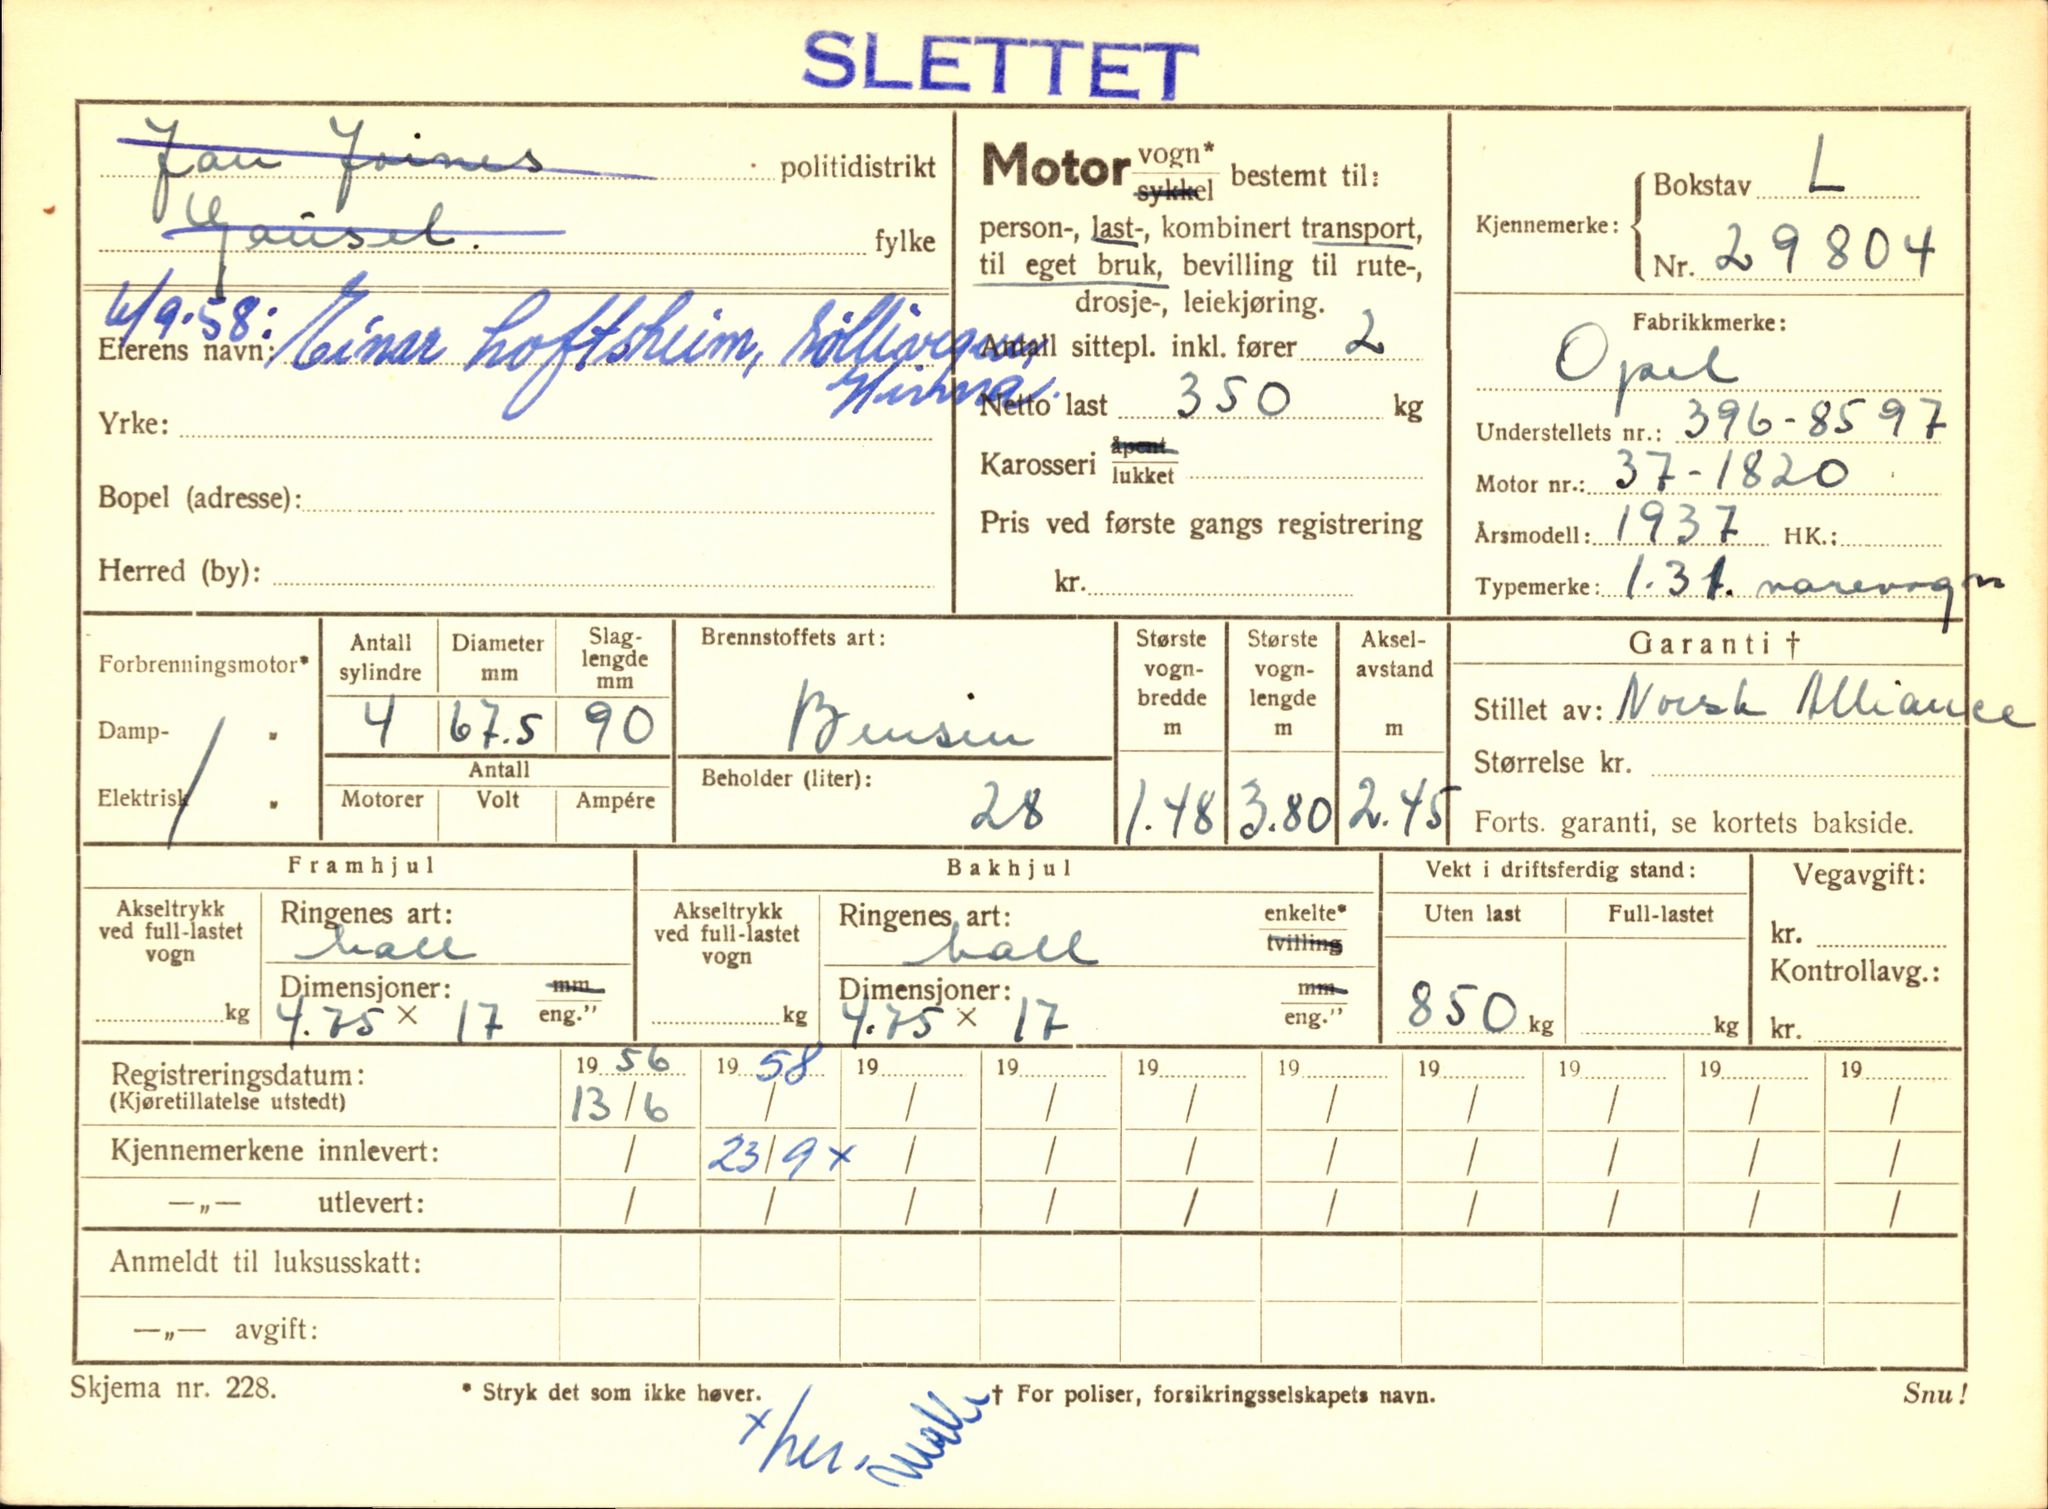 SLETTET
Jan Joines politidistrikt
Gausel. fylke
6/9-58: Einar Loftsheim,
Eierens navn:
Yrke:
Bopel (adresse):
Herred (by):
Motor vogn* sykkel bestemt til:
person-, last-, kombinert transport,
til eget bruk, bevilling til rute-,
drosje-, leiekjøring.
Antall sittepl. inkl. fører 2
Netto last 350 kg
Karosseri åpent lukket
Pris ved første gangs registrering
kr.
Kjennemerke: Bokstav L
Nr. 29804
Fabrikkmerke:
Opel
Understellets nr.: 396-8597
Motor nr.: 37-1820
Årsmodell: 1937 HK.:
Typemerke: 1.3 l. varevogn
Forbrenningsmotor*
Damp- „
Elektrisk „
Antall sylindre Diameter mm Slag-lengde mm
4 67.5 90
Antall
Motorer Volt Ampére
Brennstoffets art:
Bensin
Beholder (liter):
28
Største vogn-bredde m
1.48
Største vogn-lengde m
3.80
Aksel-avstand m
2.45
Garanti †
Stillet av: Norsk Alliance
Størrelse kr.
Forts. garanti, se kortets bakside.
Framhjul
Akseltrykk ved full-lastet vogn
kg
Ringenes art:
ball
Dimensjoner: mm eng."
4.75 × 17
Bakhjul
Akseltrykk ved full-lastet vogn
kg
Ringenes art: enkelte* tvilling
ball
Dimensjoner: mm eng."
4.75 × 17
Vekt i driftsferdig stand:
Uten last Full-lastet
850 kg kg
Vegavgift:
kr.
Kontrollavg.:
kr.
Registreringsdatum: 19 56 19 58 19 19 19 19 19 19 19 19
(Kjøretillatelse utstedt) 13/6 / / / / / / / / /
Kjennemerkene innlevert: / 23/9 x / / / / / / / /
—„— utlevert: / / / / / / / / / /
Anmeldt til luksusskatt:
—„— avgift:
Skjema nr. 228. * Stryk det som ikke høver. † For poliser, forsikringsselskapets navn. Snu!
x her.